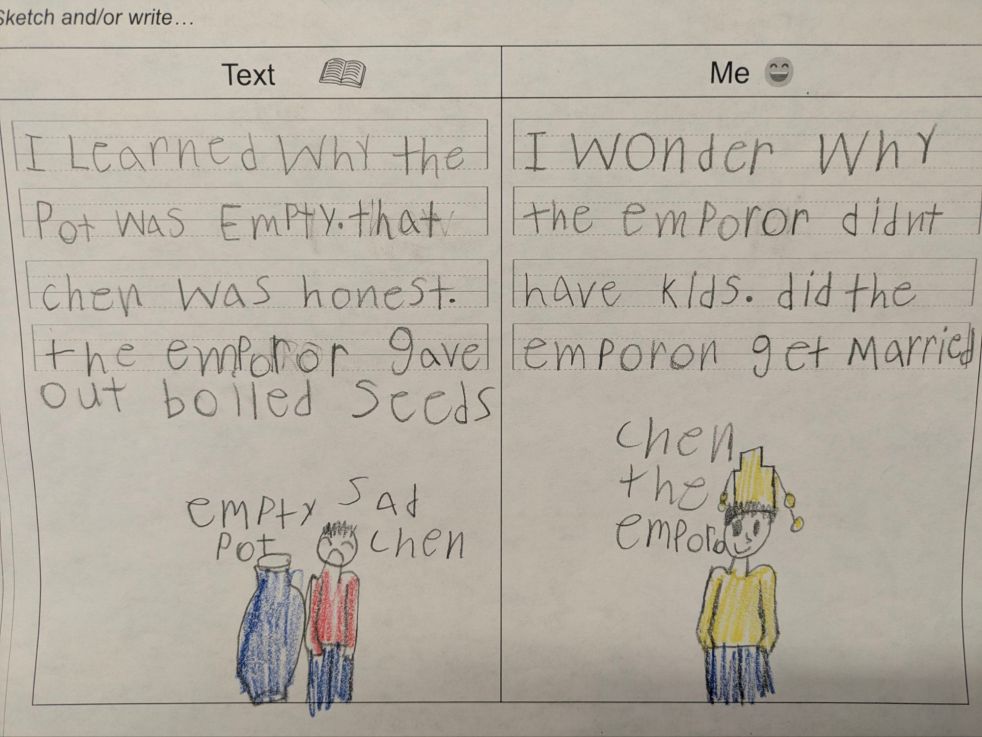 Sketch and/or write...
Text
I Learned Why the
Pot was Empty. that
chen was honest.
the emporor gave
out boiled Seeds
empty Sad
pot chen
Me
I wonder Why
the emporor didnt
have kids. did the
emporon get Married
chen
the
emporo